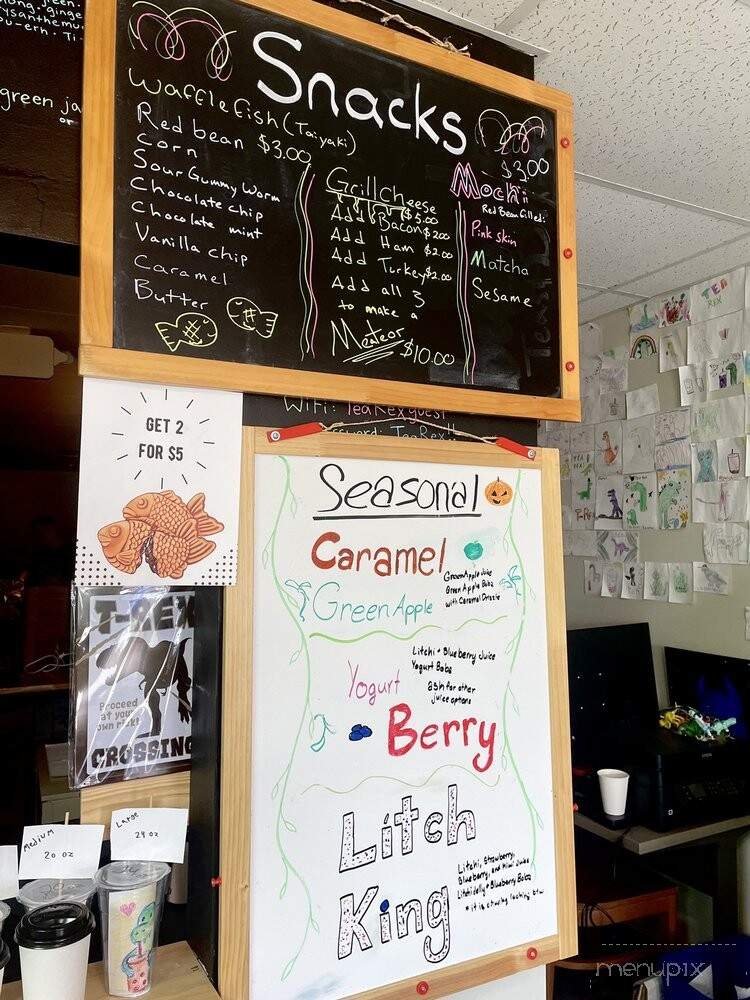 green ja
or
Snacks
Waffle fish (Taiyaki)
Red bean $3.00
Corn
Sour Gummy Worm
Chocolate chip
Chocolate mint
Vanilla chip
Caramel
Butter
Grill Cheese
$5.00
Add Bacon $2.00
Add Ham $2.00
Add Turkey $2.00
Add all 3
to make a
Meateor
$10.00
$3.00
Mochi
Red Bean filled:
Pink skin
Matcha
Sesame
WiFi: TeaRexguest
TeaRex!!
GET 2
FOR $5
T-REX
Proceed
at your
own risk!
CROSSING
Medium
20 oz
Large
24 oz
Seasonal
Caramel
Green Apple
Green Apple Juice
Green Apple Boba
with Caramel Drizzle
Yogurt
Berry
Litchi + Blueberry Juice
Yogurt Boba
ask for other
juice options
Litch
King
Litchi, Strawberry,
Blueberry, and Kiwi Juice
Litchi Jelly + Blueberry Boba
TEA
REX
menupix